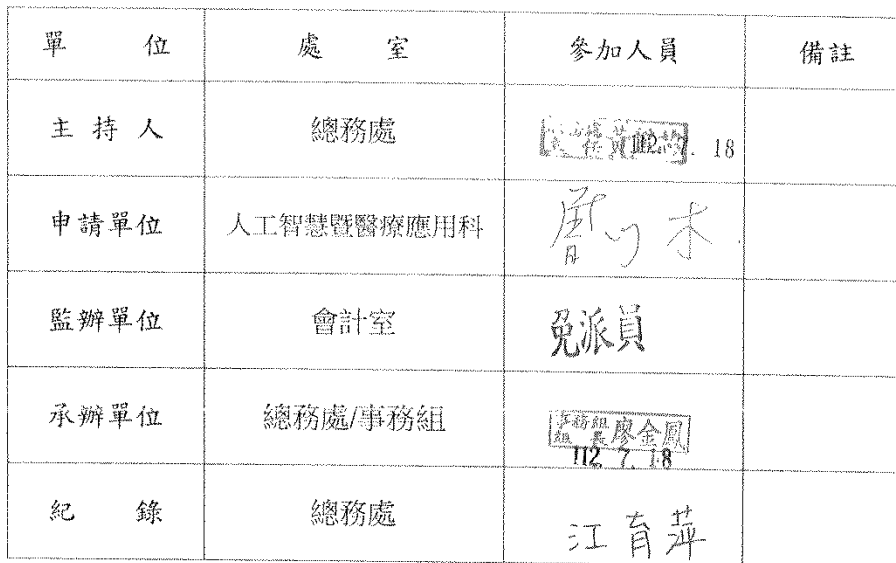 單 位 處 室 參加人員 備註
主 持 人 總務處 黃 112. 7. 18
申請單位 人工智慧暨醫療應用科 木
監辦單位 會計室 免派員
承辦單位 總務處/事務組 事務組組長 廖金鳳
112. 7. 18
紀 錄 總務處 江育萍